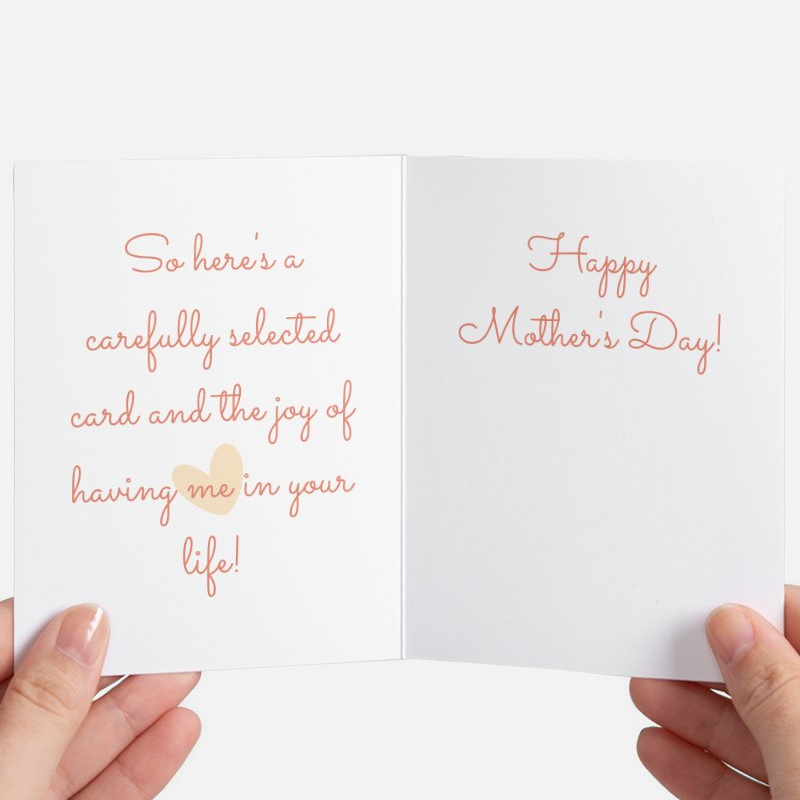 So here's a
carefully selected
card and the joy of
having me in your
life!
Happy
Mother's Day!